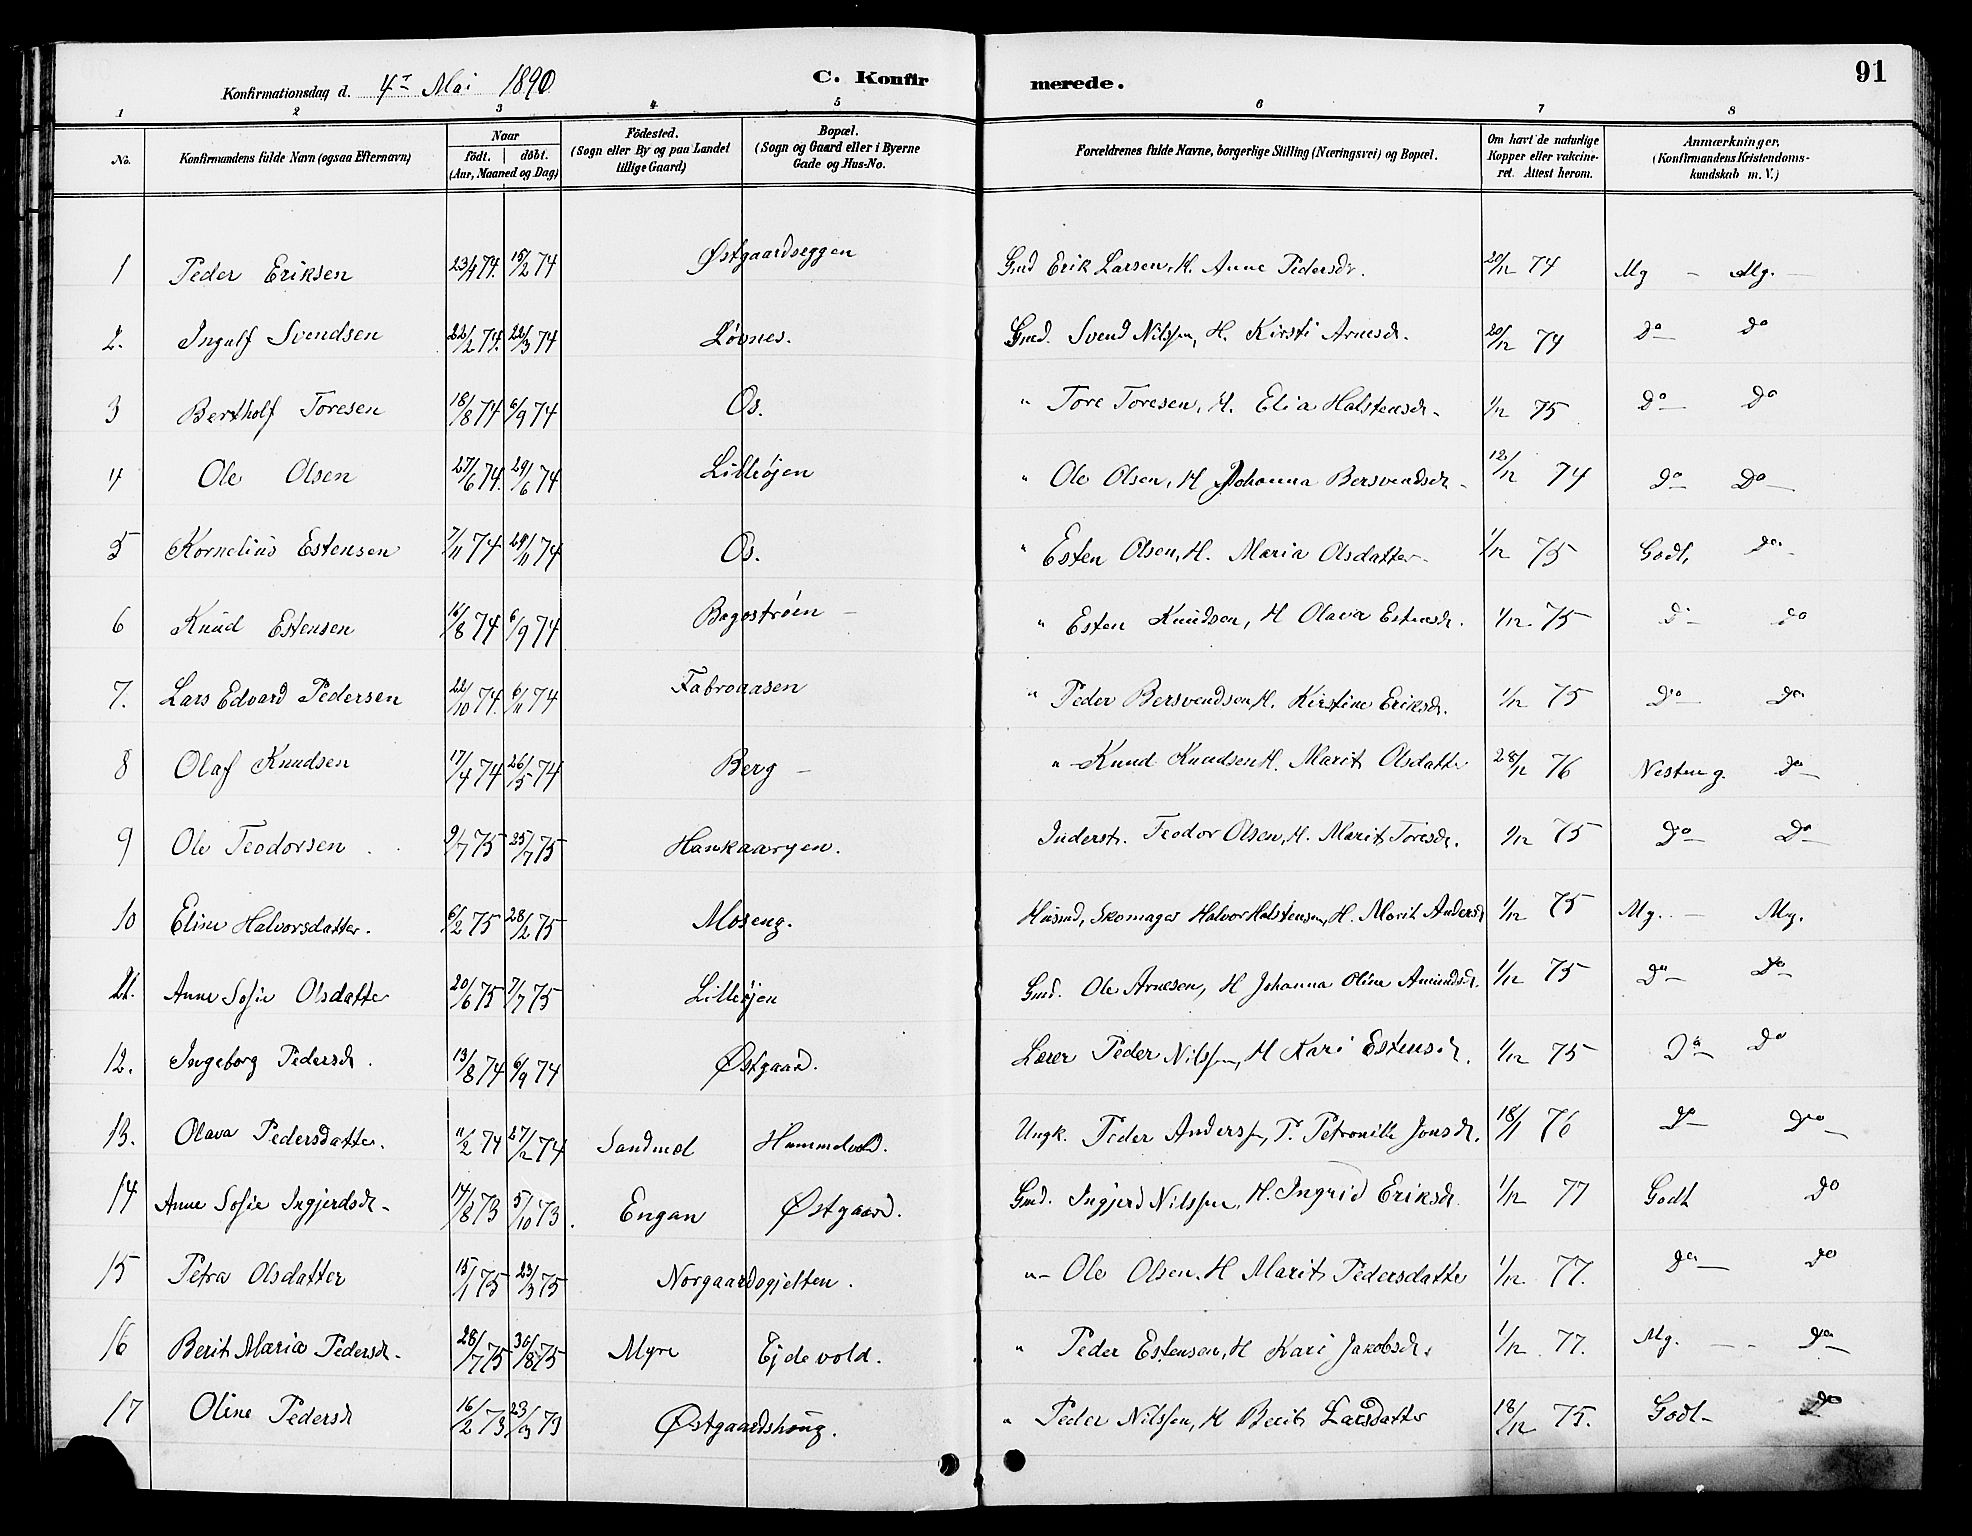 Konfirmationsdag d. 4de Mai 1890 C. Konfirmerede. 91
1 2 3 4 5 6 7 8
No. Konfirmandens fulde Navn (ogsaa Efternavn) Naar födt. döbt. (Aar, Maaned og Dag) Födested. (Sogn eller By og paa Landet tillige Gaard) Bopæl. (Sogn og Gaard eller i Byerne Gade og Hus-No. Forældrenes fulde Navne, borgerlige Stilling (Næringsvei) og Bopæl. Om havt de naturlige Kopper eller vakcineret. Attest herom. Anmærkninger, (Konfirmandens Kristendomskundskab m. V.)
1 Peder Eriksen 23/1 74. 15/2 74 Østgaardseggen Gmd Erik Larsen, H. Anne Pedersdr. 20/12 74 Mg - Mg.
2. Ingulf Svendsen 22/2 74. 22/3 74 Løvnes. Gmd. Svend Nilssen, H. Kirsti Arnesdr. 20/12 74 Do Do
3 Bertholf Toresen 18/8 74 6/9 74 Os. " Tore Toresen, H. Elia Halstensdr. 1/12 75 Do Do
4 Ole Olsen 27/6 74. 29/6 74 Lilleøjen " Ole Olsen, H Johanna Bersvendsdr 12/12 74 Do Do
5 Kornelius Estensen 7/11 74 29/11 74 Os. " Esten Olsen, H. Maria Olsdatter 1/12 75 Godt, Do
6 Knud Estensen 16/8 74 6/9 74 Bagostrøen " Esten Knudsen, H Olava Estensdr. 1/12 75 Do Do
7. Lars Edvard Pedersen 22/10 74. 6/11 74 Fabroaasen " Peder Bersvendsen H. Kirstine Eriksdr. 1/12 75 Do Do
8 Olaf Knudsen 17/4 74 26/5 74 Berg " Knud Knudsen H. Marit Olsdatter 28/12 76 Nesten g. Do
9 Ole Teodorsen 9/7 75 25/7 75 Hankaaryen. Inderst. Teodor Olsen, H. Marit Toresdr. 1/12 75 Do Do
10 Eline Halvorsdatter. 6/2 75 28/2 75 Moseng. Husmd, Skomager Halvor Halstensen, H. Marit Andersd 1/12 75 Mg. - Mg.
11. Anne Sofie Olsdatter 20/6 75 7/7 75 Lilleøjen Gmd. Ole Arnesen, H Johanna Oline Amundsdr. 1/12 75 Do Do
12. Ingeborg Pedersdr. 13/8 74 6/9 74 Østgaard. Lærer Peder Nilssen, H Kari Estensdr. 1/12 75 Do Do
13. Olava Pedersdatter. 11/2 74 27/2 74 Sandmæl Hummelvold. Ungk. Peder Anderss, P. Petronille Jonsdr. 18/1 76 Do Do
14 Anne Sofie Ingjerdsdr. 14/8 73 5/10 73. Engan Østgaard. Gmd. Ingjerd Nilssen, H. Ingrid Eriksdr. 1/12 77 Godt Do
15 Petra Olsdatter 15/1 75 23/3 75 Norgaardsgjelten. " Ole Olsen. H Marit Pedersdatter 1/12 77. Do Do
16 Berit Maria Pedersdr. 28/7 75 30/8 75 Myre Ejdevold. " Peder Estensen, H Kari Jakobsdr. 1/12 77. Mg. Do
17 Oline Pedersdr 16/2 73 23/3 73 Østgaardshoug. " Peder Nilssen, H Berit Larsdatter 18/12 75. Godt Do